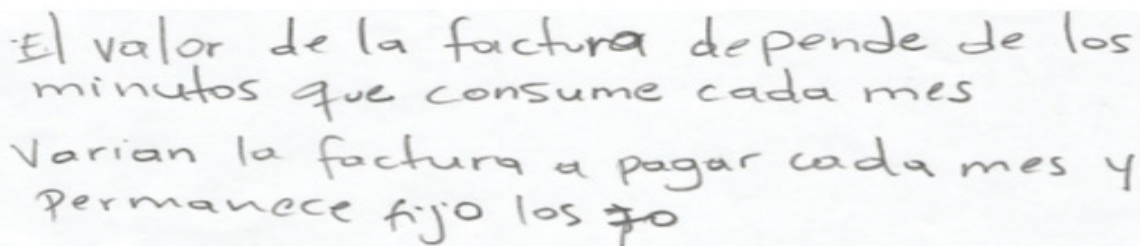 El valor de la factura depende de los
minutos que consume cada mes
Varian la factura a pagar cada mes y
Permanece fijo los 70